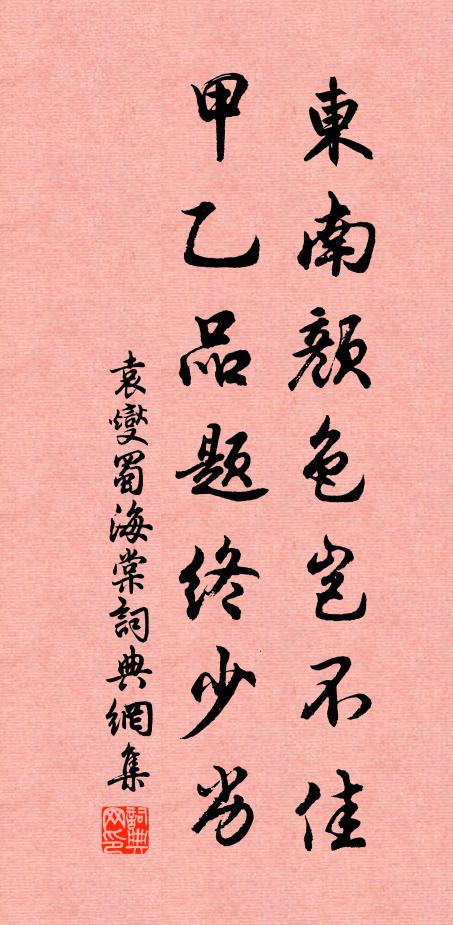 東南顏色豈不佳
甲乙品題終少劣
袁燮蜀海棠詞典網集
詞典網印